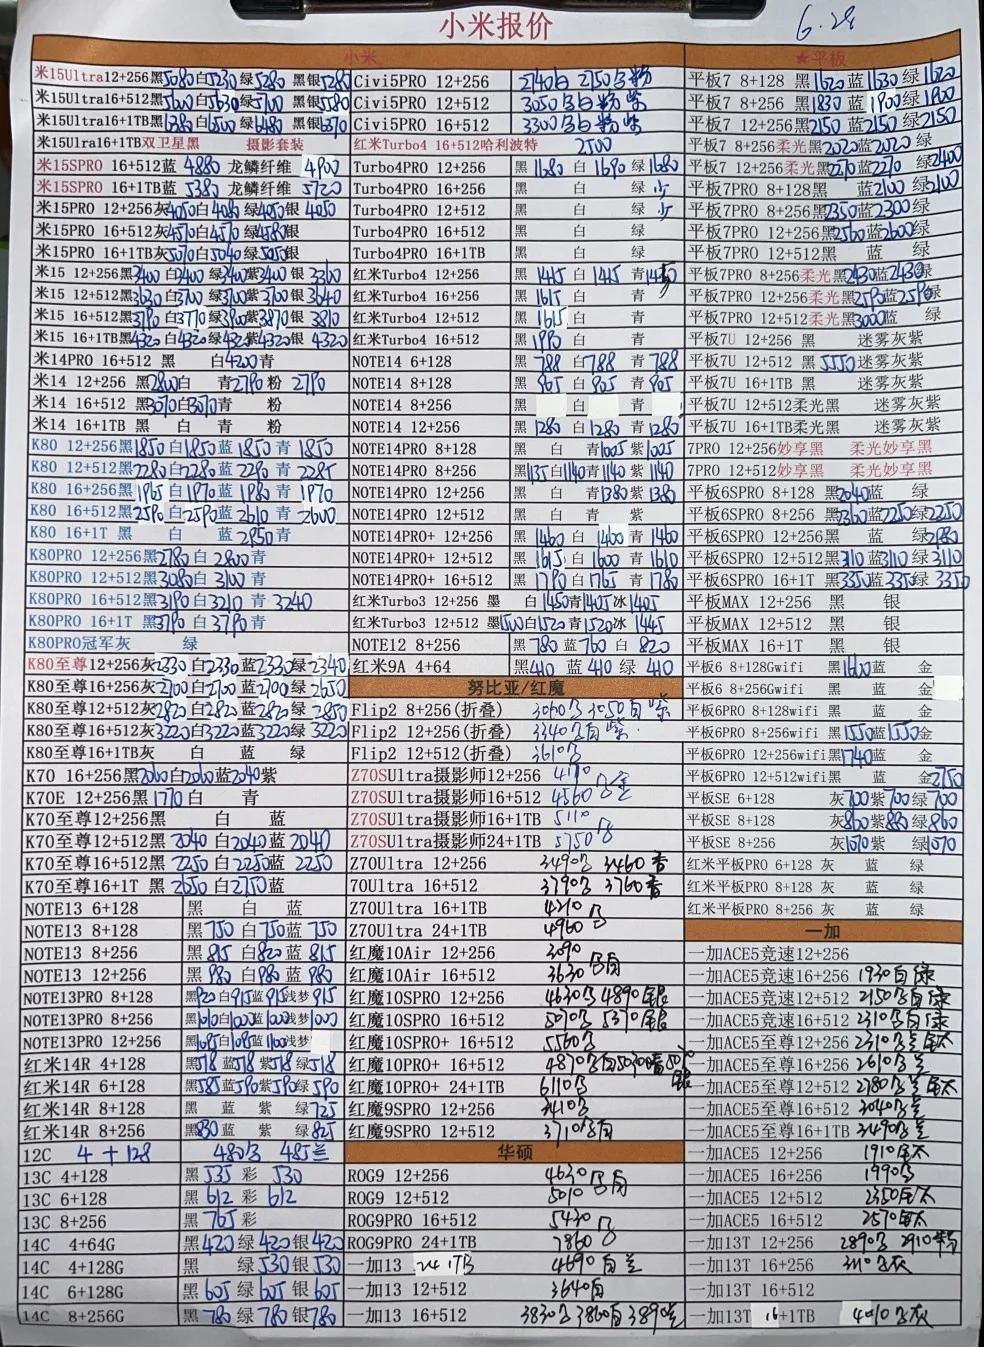 小米报价
6.28
小米
米15Ultra12+256黑5080白5230绿5280 黑银5280
米15Ultra16+512黑5600白5630绿5700 黑银5580
米15Ultra16+1TB黑 白6500绿6480 黑银6370
米15Ulra16+1TB双卫星黑 摄影套装
米15SPRO 16+512蓝 4880 龙鳞纤维 4900
米15SPRO 16+1TB蓝 5380 龙鳞纤维 5720
米15PRO 12+256灰4050白4080绿4050银 4050
米15PRO 16+512灰4570白4570绿4580银
米15PRO 16+1TB灰5070白5040绿5050银
米15 12+256黑3400白3400绿3400紫3400银 3360
米15 12+512黑3630白3700绿3700紫3700银 3640
米15 16+512黑3790白3770绿3900紫3870银 3810
米15 16+1TB黑4320白4320绿4320紫4320银 4320
米14PRO 16+512 黑 白4200青
米14 12+256 黑2800白 青2790粉 2790
米14 16+512 黑3070白3070青 粉
米14 16+1TB 黑 白 青 粉
K80 12+256黑1850白1850蓝1850青 1850
K80 12+512黑2280白2280蓝2290青 2285
K80 16+256黑1965白1970蓝1980青 1970
K80 16+512黑2590白2590蓝2610青 2600
K80 16+1T 黑 白 蓝2850青
K80PRO 12+256黑2780白2800青
K80PRO 12+512黑3080白3100青
K80PRO 16+512黑3190白3210青 3240
K80PRO 16+1T 黑3790白3790青
K80PRO冠军灰 绿
K80至尊12+256灰2330白2330蓝2330绿2340
K80至尊16+256灰2700白2700蓝2700绿2650
K80至尊12+512灰2820白2820蓝2820绿2850
K80至尊16+512灰3220白3220蓝3220绿3220
K80至尊16+1TB灰 白 蓝 绿
K70 16+256黑2060白2060蓝2040紫
K70E 12+256黑1770白 青
K70至尊12+256黑 白 蓝
K70至尊12+512黑2040白2040蓝2040
K70至尊16+512黑2250白2250蓝2250
K70至尊16+1T 黑2650白2750蓝
NOTE13 6+128 黑 白 蓝
NOTE13 8+128 黑750白750蓝750
NOTE13 8+256 黑815白820蓝815
NOTE13 12+256 黑980白980蓝980
NOTE13PRO 8+128 黑920白915蓝915浅梦915
NOTE13PRO 8+256 黑1010白1000蓝1000浅梦1000
NOTE13PRO 12+256 黑1085白1085蓝1100浅梦
红米14R 4+128 黑518蓝518紫518绿518
红米14R 6+128 黑585蓝590紫590绿590
红米14R 8+128 黑 蓝 紫 绿725
红米14R 8+256 黑830蓝 紫 绿825
12C 4+128 480黑 485蓝
13C 4+128 黑535彩530
13C 6+128 黑612彩612
13C 8+256 黑765彩
14C 4+64G 黑420绿420银420
14C 4+128G 黑 绿530银530
14C 6+128G 黑605绿605银605
14C 8+256G 黑780绿780银780
Civi5PRO 12+256 2140白 2150 粉
Civi5PRO 12+512 3050 白粉紫
Civi5PRO 16+512 3300 白粉紫
红米Turbo4 16+512哈利波特 2500
Turbo4PRO 12+256 黑1680白1690绿1680
Turbo4PRO 16+256 黑 白 绿
Turbo4PRO 12+512 黑 白 绿
Turbo4PRO 16+512 黑 白 绿
Turbo4PRO 16+1TB 黑 白 绿
红米Turbo4 12+256 黑1445白1445青
红米Turbo4 16+256 黑1615白 青
红米Turbo4 12+512 黑1615白 青
红米Turbo4 16+512 黑1990白 青
NOTE14 6+128 黑788白788青788
NOTE14 8+128 黑865白805青805
NOTE14 8+256 黑 白 青
NOTE14 12+256 黑1280白1280青1280
NOTE14PRO 8+128 黑 白 青1005紫1005
NOTE14PRO 8+256 黑1135白1140青1140紫1140
NOTE14PRO 12+256 黑 白 青1380紫1380
NOTE14PRO 12+512 黑 白 青 紫
NOTE14PRO+ 12+256 黑1460白1460青1460
NOTE14PRO+ 12+512 黑1615白1600青1610
NOTE14PRO+ 16+512 黑1790白1765青1780
红米Turbo3 12+256 墨 白1450青1405冰1405
红米Turbo3 12+512 墨1500白1520青1520冰1445
NOTE12 8+256 黑780蓝760白820
红米9A 4+64 黑410蓝410绿410
努比亚/红魔
Flip2 8+256(折叠) 3060 3050白紫
Flip2 12+256(折叠) 3340 白紫
Flip2 12+512(折叠) 3610
Z70SUltra摄影师12+256 4190
Z70SUltra摄影师16+512 4560
Z70SUltra摄影师16+1TB 5110
Z70SUltra摄影师24+1TB 5750
Z70Ultra 12+256 3490 3460
70Ultra 16+512 3790 3760
Z70Ultra 16+1TB 4210
Z70Ultra 24+1TB 4960
红魔10Air 12+256 3090
红魔10Air 16+512 3630
红魔10SPRO 12+256 4630 4890银
红魔10SPRO 16+512 5070 5370银
红魔10SPRO+ 16+512 5560
红魔10PRO+ 16+512 4870
红魔10PRO+ 24+1TB 6110
红魔9SPRO 12+256 3410
红魔9SPRO 16+512 3710
华硕
ROG9 12+256 4630
ROG9 12+512 5010
ROG9PRO 16+512 5430
ROG9PRO 24+1TB 7860
一加13 24+1TB 4690
一加13 12+512 3640
一加13 16+512 3830 3860白3890
★平板
平板7 8+128 黑1620蓝1630绿1620
平板7 8+256 黑1830蓝1900绿1900
平板7 12+256黑2150蓝2150绿2150
平板7 8+256柔光黑2020蓝2020绿
平板7 12+256柔光黑2270蓝2270绿2400
平板7PRO 8+128黑 蓝2100绿2100
平板7PRO 8+256黑2350蓝2300绿
平板7PRO 12+256黑2560蓝2600绿
平板7PRO 12+512黑 蓝 绿
平板7PRO 8+256柔光黑2430蓝2430绿
平板7PRO 12+256柔光黑2590蓝2590绿
平板7PRO 12+512柔光黑3000蓝 绿
平板7U 12+256 黑 迷雾灰紫
平板7U 12+512 黑5550迷雾灰紫
平板7U 16+1TB 黑 迷雾灰紫
平板7U 12+512柔光黑 迷雾灰紫
平板7U 16+1TB柔光黑 迷雾灰紫
7PRO 12+256妙享黑 柔光妙享黑
7PRO 12+512妙享黑 柔光妙享黑
平板6SPRO 8+128 黑2040蓝 绿
平板6SPRO 8+256 黑2360蓝2250绿2250
平板6SPRO 12+256 黑 蓝 绿2680
平板6SPRO 12+512黑3110蓝3110绿3110
平板6SPRO 16+1T 黑3350蓝3350绿3350
平板MAX 12+256 黑 银
平板MAX 12+512 黑 银
平板MAX 16+1T 黑 银
平板6 8+128Gwifi 黑1600蓝 金
平板6 8+256Gwifi 黑 蓝 金
平板6PRO 8+128wifi 黑 蓝 金
平板6PRO 8+256wifi 黑1550蓝1550金
平板6PRO 12+256wifi黑1740蓝 金
平板6PRO 12+512wifi黑 蓝 金2750
平板SE 6+128 灰700紫700绿700
平板SE 8+128 灰860紫880绿860
平板SE 8+256 灰1070紫 绿1070
红米平板PRO 6+128 灰 蓝 绿
红米平板PRO 8+128 灰 蓝 绿
红米平板PRO 8+256 灰 蓝 绿
一加
一加ACE5竞速12+256
一加ACE5竞速16+256 1930白绿
一加ACE5竞速12+512 2150 白绿
一加ACE5竞速16+512 2310 白绿
一加ACE5至尊12+256 2310 钛
一加ACE5至尊16+256 2610
一加ACE5至尊12+512 2780 钛
一加ACE5至尊16+512 3040
一加ACE5至尊16+1TB 3490
一加ACE5 12+256 1910 钛
一加ACE5 16+256 1990
一加ACE5 12+512 2350 钛
一加ACE5 16+512 2570 钛
一加13T 12+256 2890 2910粉
一加13T 16+256 灰
一加13T 12+512
一加13T 16+512
一加13T 16+1TB 4010 灰